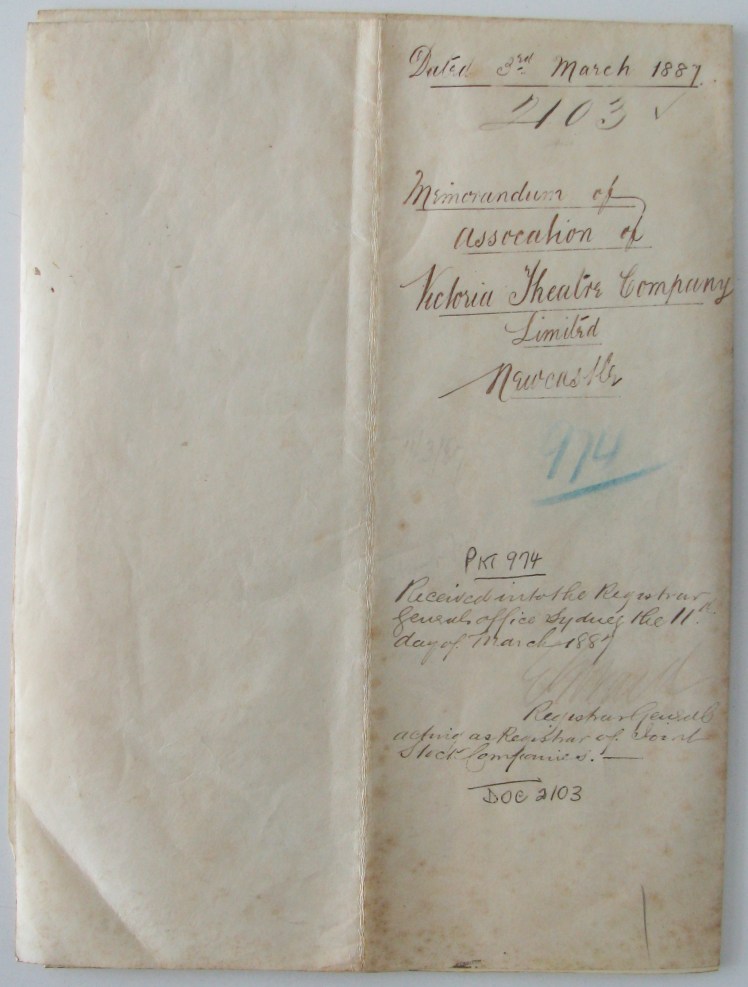 Dated 3rd March 1887.
2103 ✓
Memorandum of
assocation of
Victoria Theatre Company
Limited
Newcastle
974
PKT 974
Received into the Registrar
Generals office Sydney the 11th
day of March 1887
Registrar General
acting as Registrar of Joint
Stock Companies. —
DOC 2103